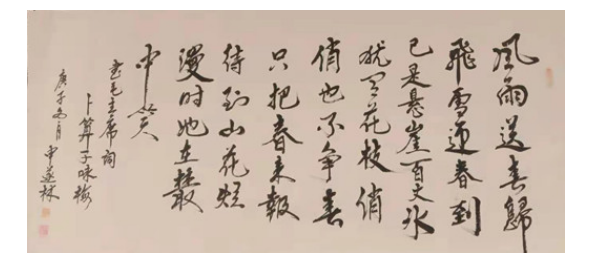 風雨送春歸
飛雪迎春到
已是悬崖百丈冰
犹有花枝俏
俏也不争春
只把春来報
待到山花烂
漫时她在叢
中笑
书毛主席词
卜算子咏梅
庚子冬月